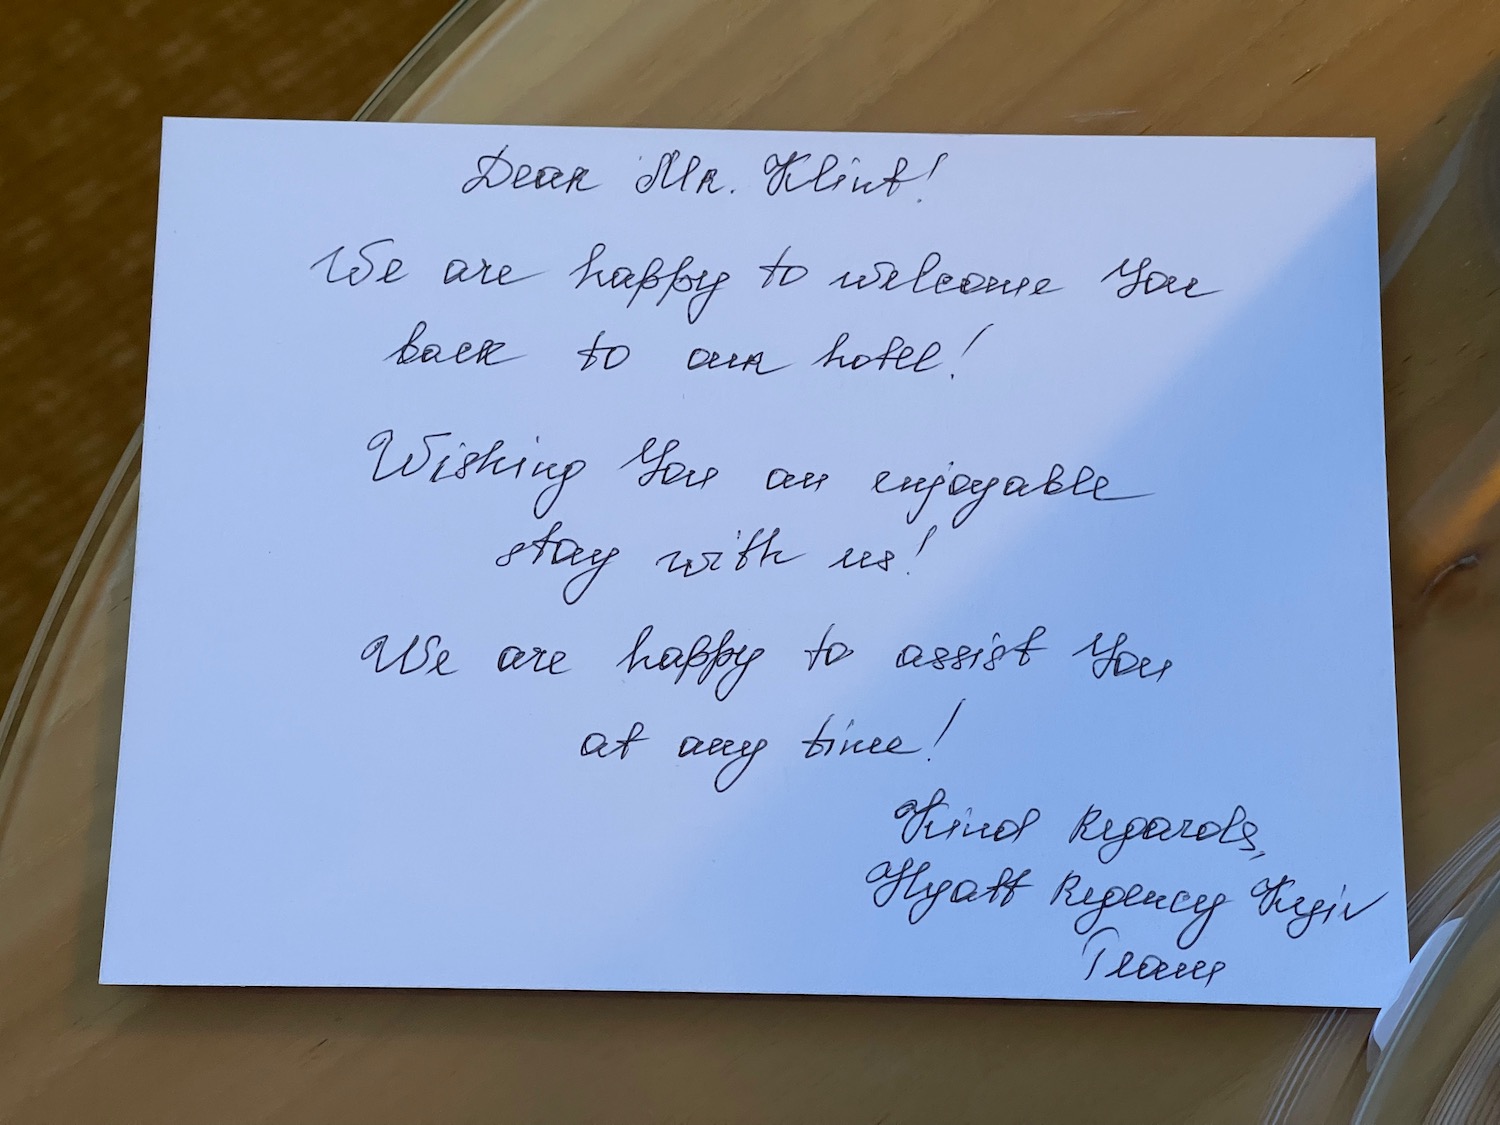 Dear Mr. Klint!
We are happy to welcome You
back to our hotel!
Wishing You an enjoyable
stay with us!
We are happy to assist You
at any time!
Kind Regards,
Hyatt Regency Kyiv
Team